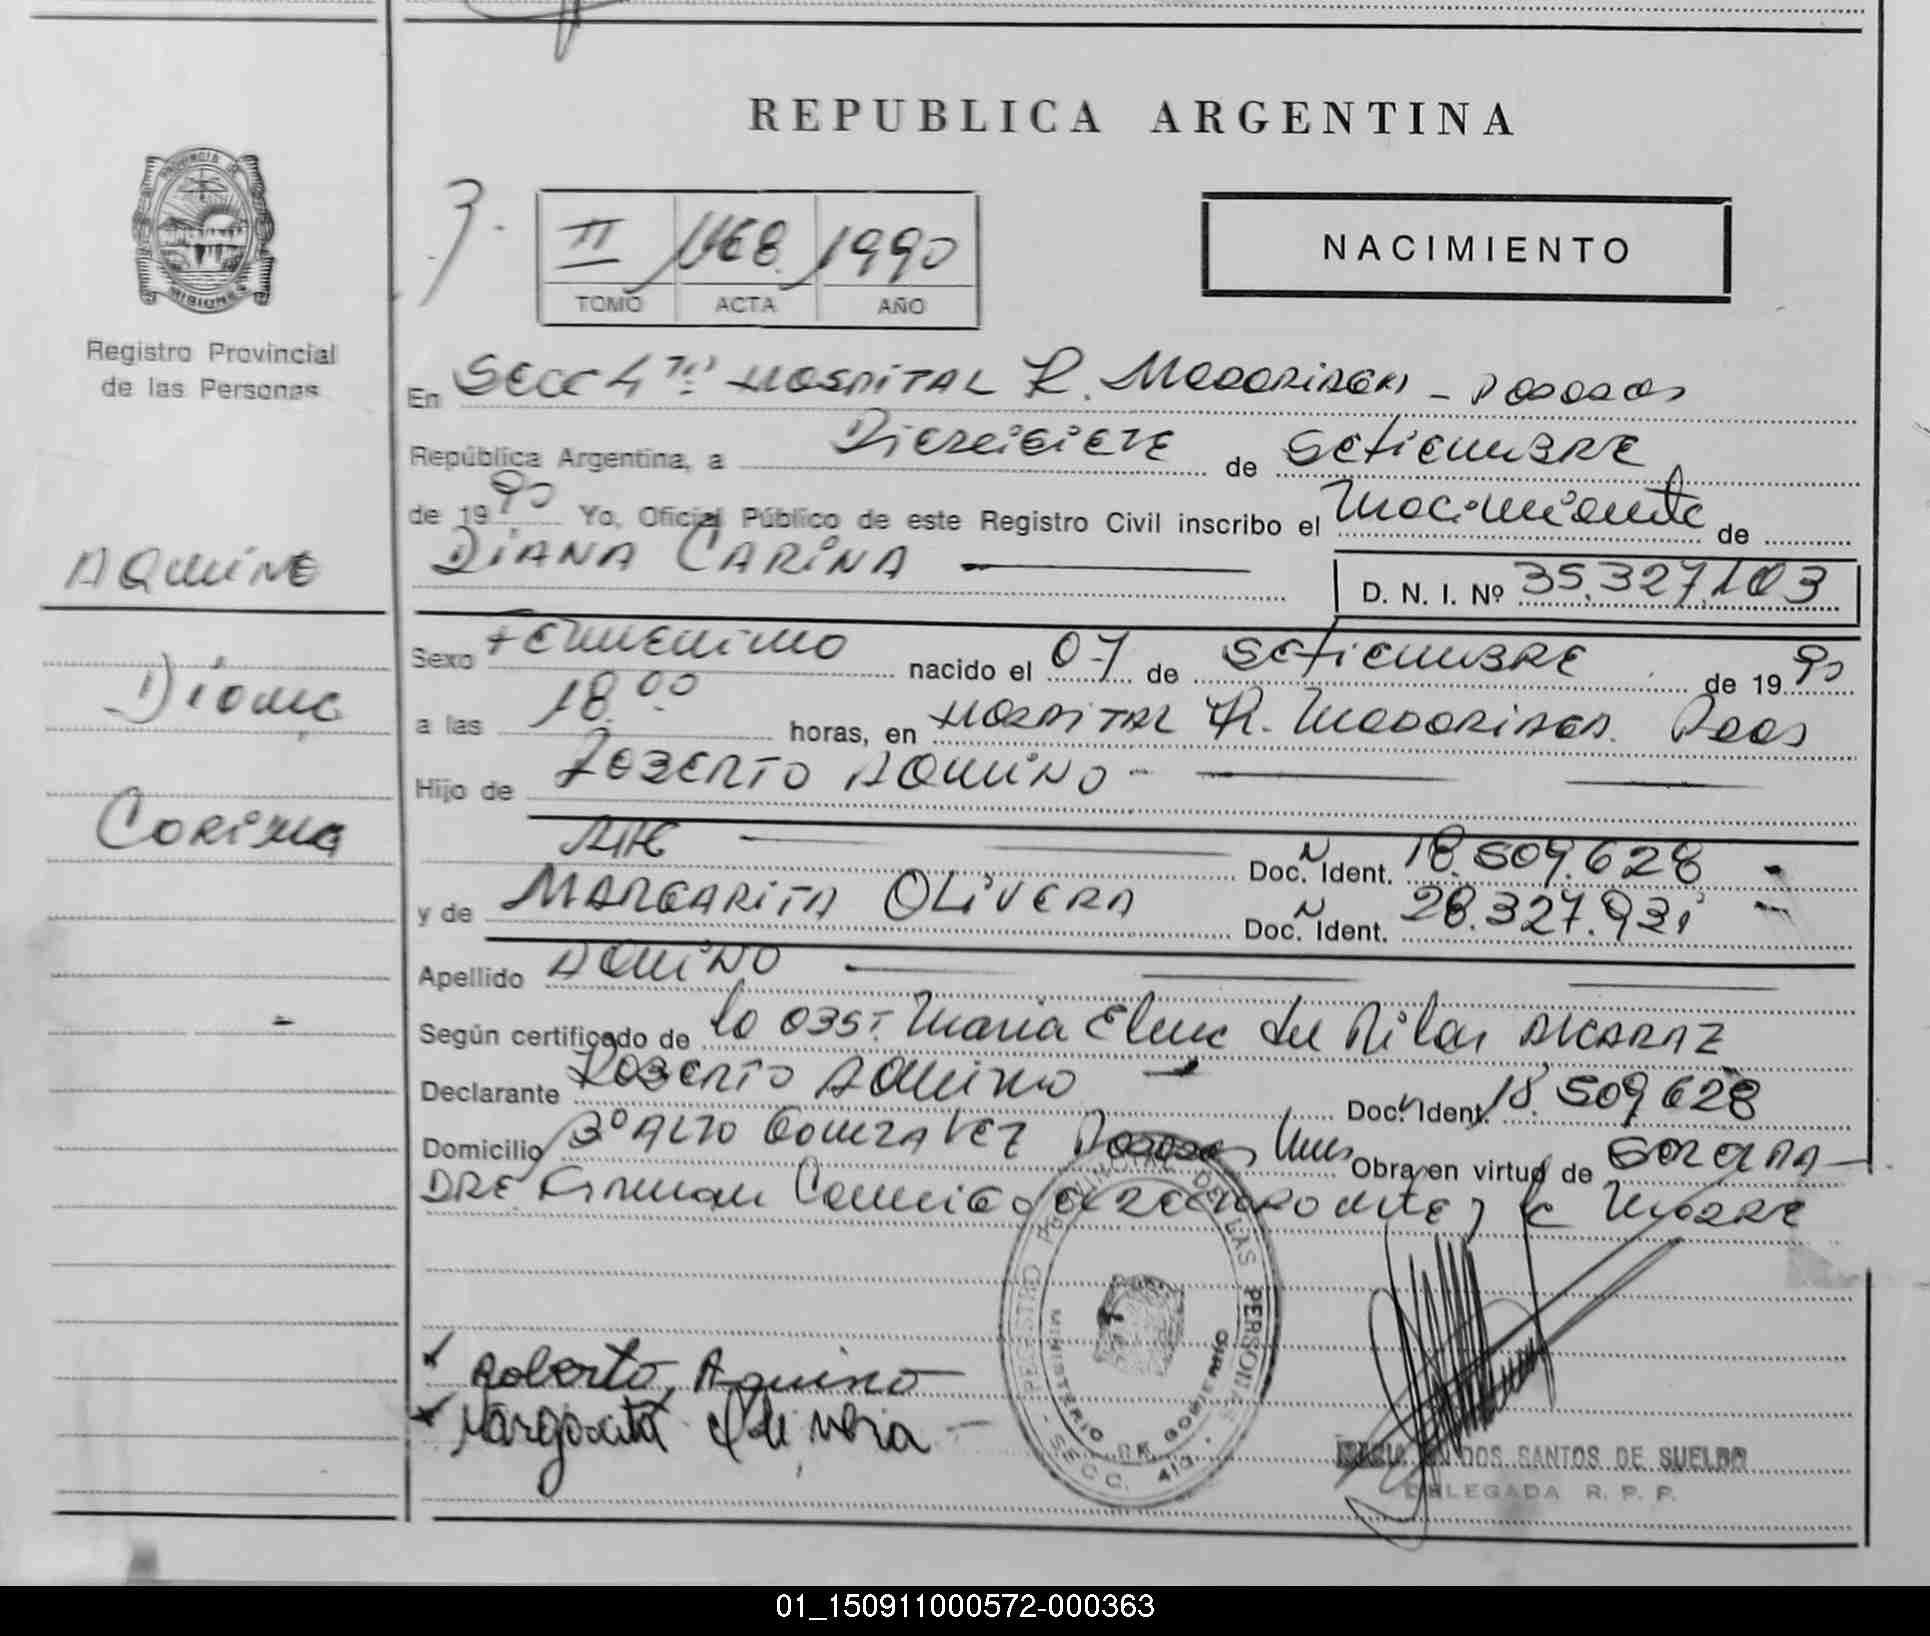 REPUBLICA ARGENTINA
PROVINCIA DE MISIONES
Registro Provincial
de las Personas
II 1990
TOMO ACTA AÑO
NACIMIENTO
En SECC 4ta HOSPITAL R. MADARIAGA - POSADAS
República Argentina, a Diecisiete de Setiembre
de 1990 Yo, Oficial Público de este Registro Civil inscribo el nacimiento de
AQUINO
DIANA CARINA D. N. I. Nº 35.327.103
Sexo Femenino nacido el 07 de Setiembre de 1990
Diana
a las 18.00 horas, en HOSPITAL R. MADARIAGA. Pdas
Hijo de ROBERTO AQUINO
Carina
Doc. Ident. 18.509.628
y de MARGARITA OLIVERA Doc. Ident. 28.327.931
Apellido AQUINO
Según certificado de la OBST. Maria Elena del Pilar ALCARAZ
Declarante ROBERTO AQUINO Doc. Ident. 18.509.628
Domicilio Bº ALTO GONZALEZ Posadas Mnes Obra en virtud de ser el PA-
DRE Firman Conmigo el DECLARANTE y la MADRE
Roberto, Aquino
Margarita Olivera
REGISTRO PROVINCIAL DE LAS PERSONAS
MINISTERIO DE GOBIERNO
SECC. 4ta.
DOS SANTOS DE SUELDO
DELEGADA R. P. P.
01_150911000572-000363